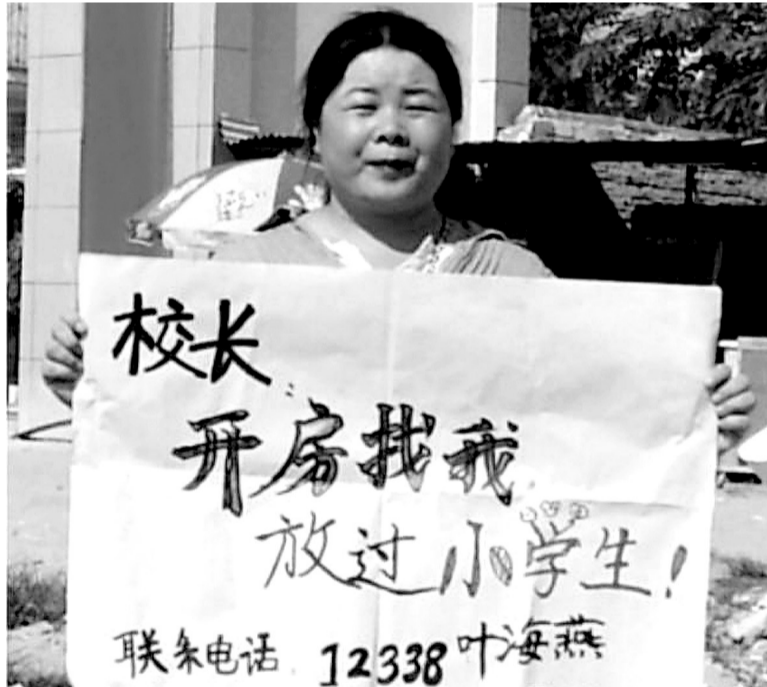 校长:
开房找我
放过小学生!
联系电话 12338 叶海燕